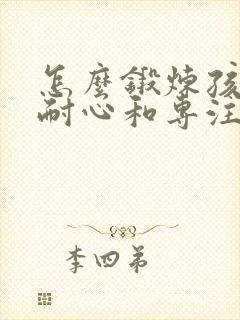 怎麼鍛煉孩
耐心和專注
李四弟